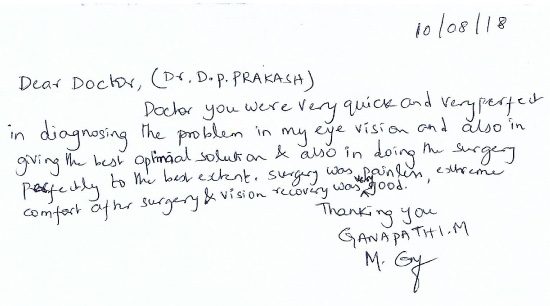 10/08/18
Dear Doctor, (Dr. D.P. PRAKASH)
Doctor you were very quick and very perfect
in diagnosing the problem in my eye vision and also in
giving the best optimial solution & also in doing the surgery
Perfectly to the best extent. surgery was painless, extreme
comfort after surgery & vision recovery was very good.
Thanking you
GANAPATHI.M
M. Gy